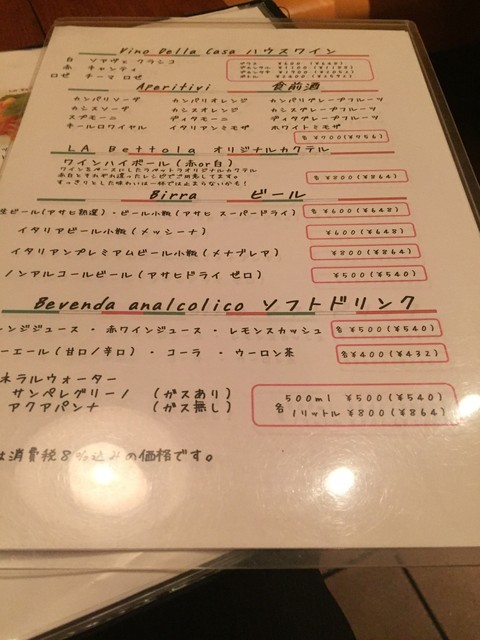 Vino Della Casa ハウスワイン
白 ソアヴェ クラシコ
赤 キャンティ
ロゼ チーマ ロゼ
グラス
デキャンタ
ボトル
Aperitivi 食前酒
カンパリソーダ カンパリオレンジ カンパリグレープフルーツ
カシスソーダ カシスオレンジ カシスグレープフルーツ
スプモーニ ディタモーニ ディタグレープフルーツ
キールロワイヤル イタリアンミモザ ホワイトミモザ
各 ¥700(¥756)
LA Bettola オリジナルカクテル
ワインハイボール (赤or白)
各 ¥800(¥864)
Birra ビール
生ビール(アサヒ熟選)・ビール小瓶(アサヒ スーパードライ) 各 ¥600(¥648)
イタリアビール小瓶 (メッシーナ) ¥600(¥648)
イタリアンプレミアムビール小瓶 (メナブレア) ¥800(¥864)
ノンアルコールビール (アサヒドライ ゼロ) ¥500(¥540)
Bevenda analcolico ソフトドリンク
ンジジュース ・ 赤ワインジュース ・ レモンスカッシュ 各 ¥500(¥540)
ーエール (甘口/辛口) ・ コーラ ・ ウーロン茶 各 ¥400(¥432)
ネラルウォーター
サンペレグリーノ (ガスあり) 500ml ¥500(¥540)
アクアパンナ (ガス無し) 各 1リットル ¥800(¥864)
は消費税8%込みの価格です。